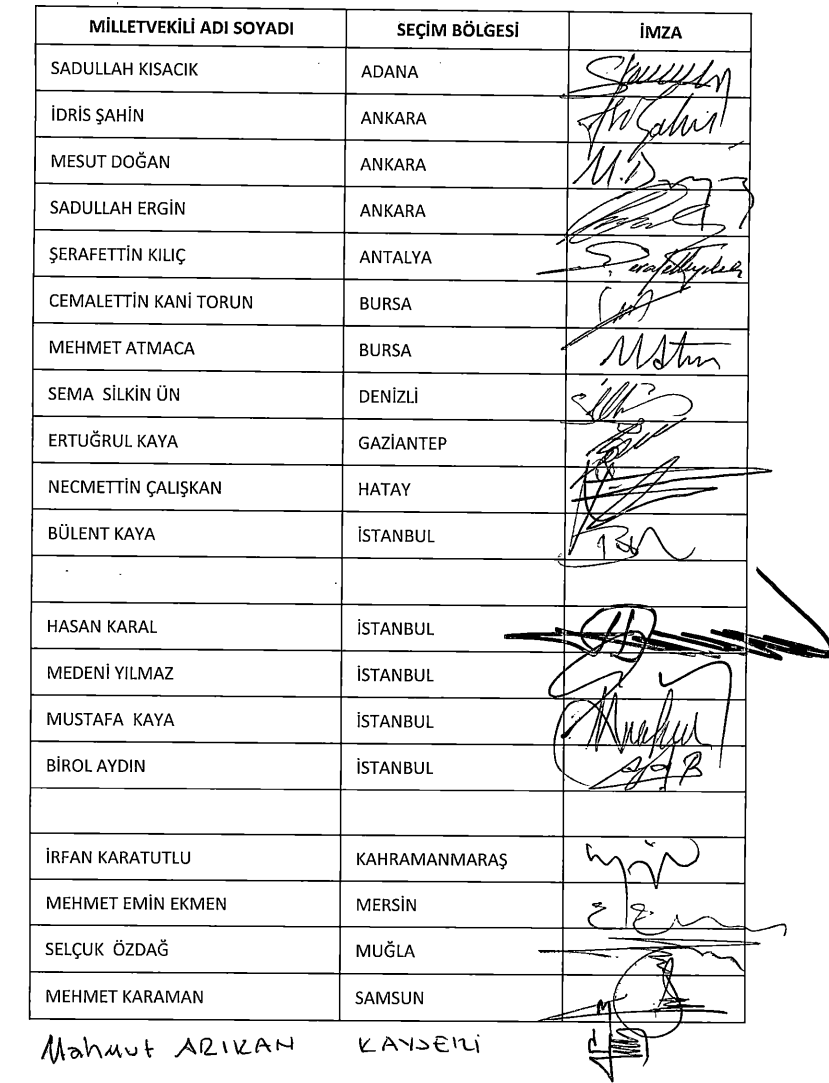 MİLLETVEKİLİ ADI SOYADI SEÇİM BÖLGESİ İMZA
SADULLAH KISACIK ADANA
İDRİS ŞAHİN ANKARA
MESUT DOĞAN ANKARA
SADULLAH ERGİN ANKARA
ŞERAFETTİN KILIÇ ANTALYA
CEMALETTİN KANİ TORUN BURSA
MEHMET ATMACA BURSA
SEMA SİLKİN ÜN DENİZLİ
ERTUĞRUL KAYA GAZİANTEP
NECMETTİN ÇALIŞKAN HATAY
BÜLENT KAYA İSTANBUL
HASAN KARAL İSTANBUL
MEDENİ YILMAZ İSTANBUL
MUSTAFA KAYA İSTANBUL
BİROL AYDIN İSTANBUL
İRFAN KARATUTLU KAHRAMANMARAŞ
MEHMET EMİN EKMEN MERSİN
SELÇUK ÖZDAĞ MUĞLA
MEHMET KARAMAN SAMSUN
Mahmut ARIKAN KAYSERİ